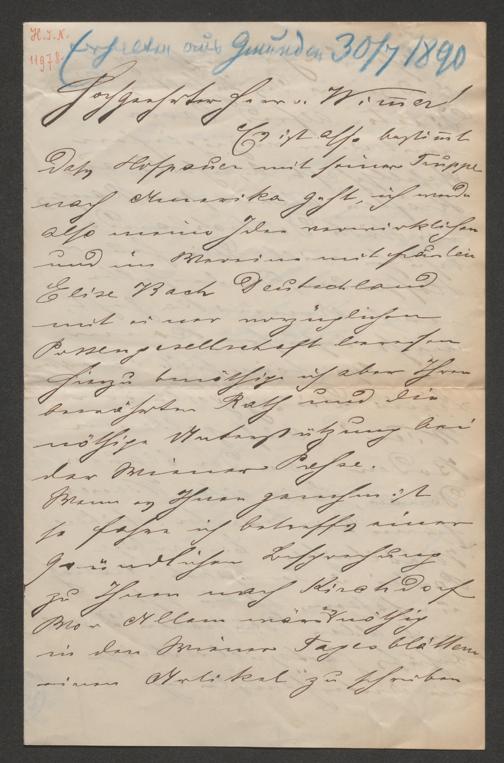 H.I.N.
11978.
Erhalten aus Gmunden 30/7 1890
Hochgeehrter Herr v. Wimmer!
Es ist also bestimmt
daß Hofpauer mit seiner Truppe
nach Amerika geht, ich werde
also meine Idee verwirklichen
und im Vereine mit Fräulein
Elise Bach Deutschland
mit einer vorzüglichen
Possengesellschaft bereisen
Hiezu benöthige ich aber Ihren
bewährten Rath und die
nöthige Unterstützung bei
der Wiener Presse.
Wenn es Ihnen genehm ist
so fahre ich betreffs einer
gründlichen Besprechung
zu Ihnen nach Kirchdorf
Vor Allem wäre nöthig
in den Wiener Tagesblättern
einen Artikel zu schreiben